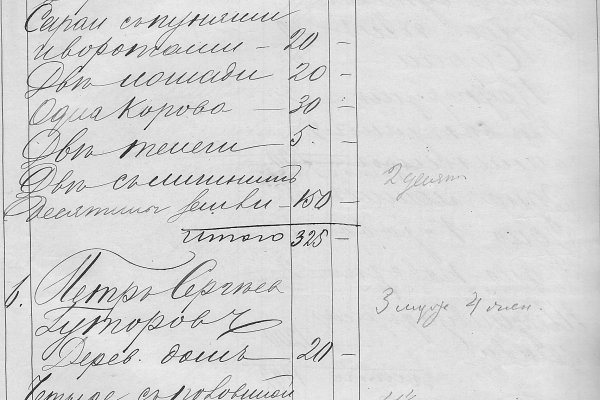 Сараи съ пуняши
и воротами – 20 –
Двѣ лошади 20 –
Одна Корова – 30 –
Двѣ телеги 5. –
Двѣ съ
Десятины земли – 150 – 2 десят
Итого 325 –
6. Петръ Сергѣев
Гуторовъ 3 муж 4 жен.
Дерев. домъ – 20 –